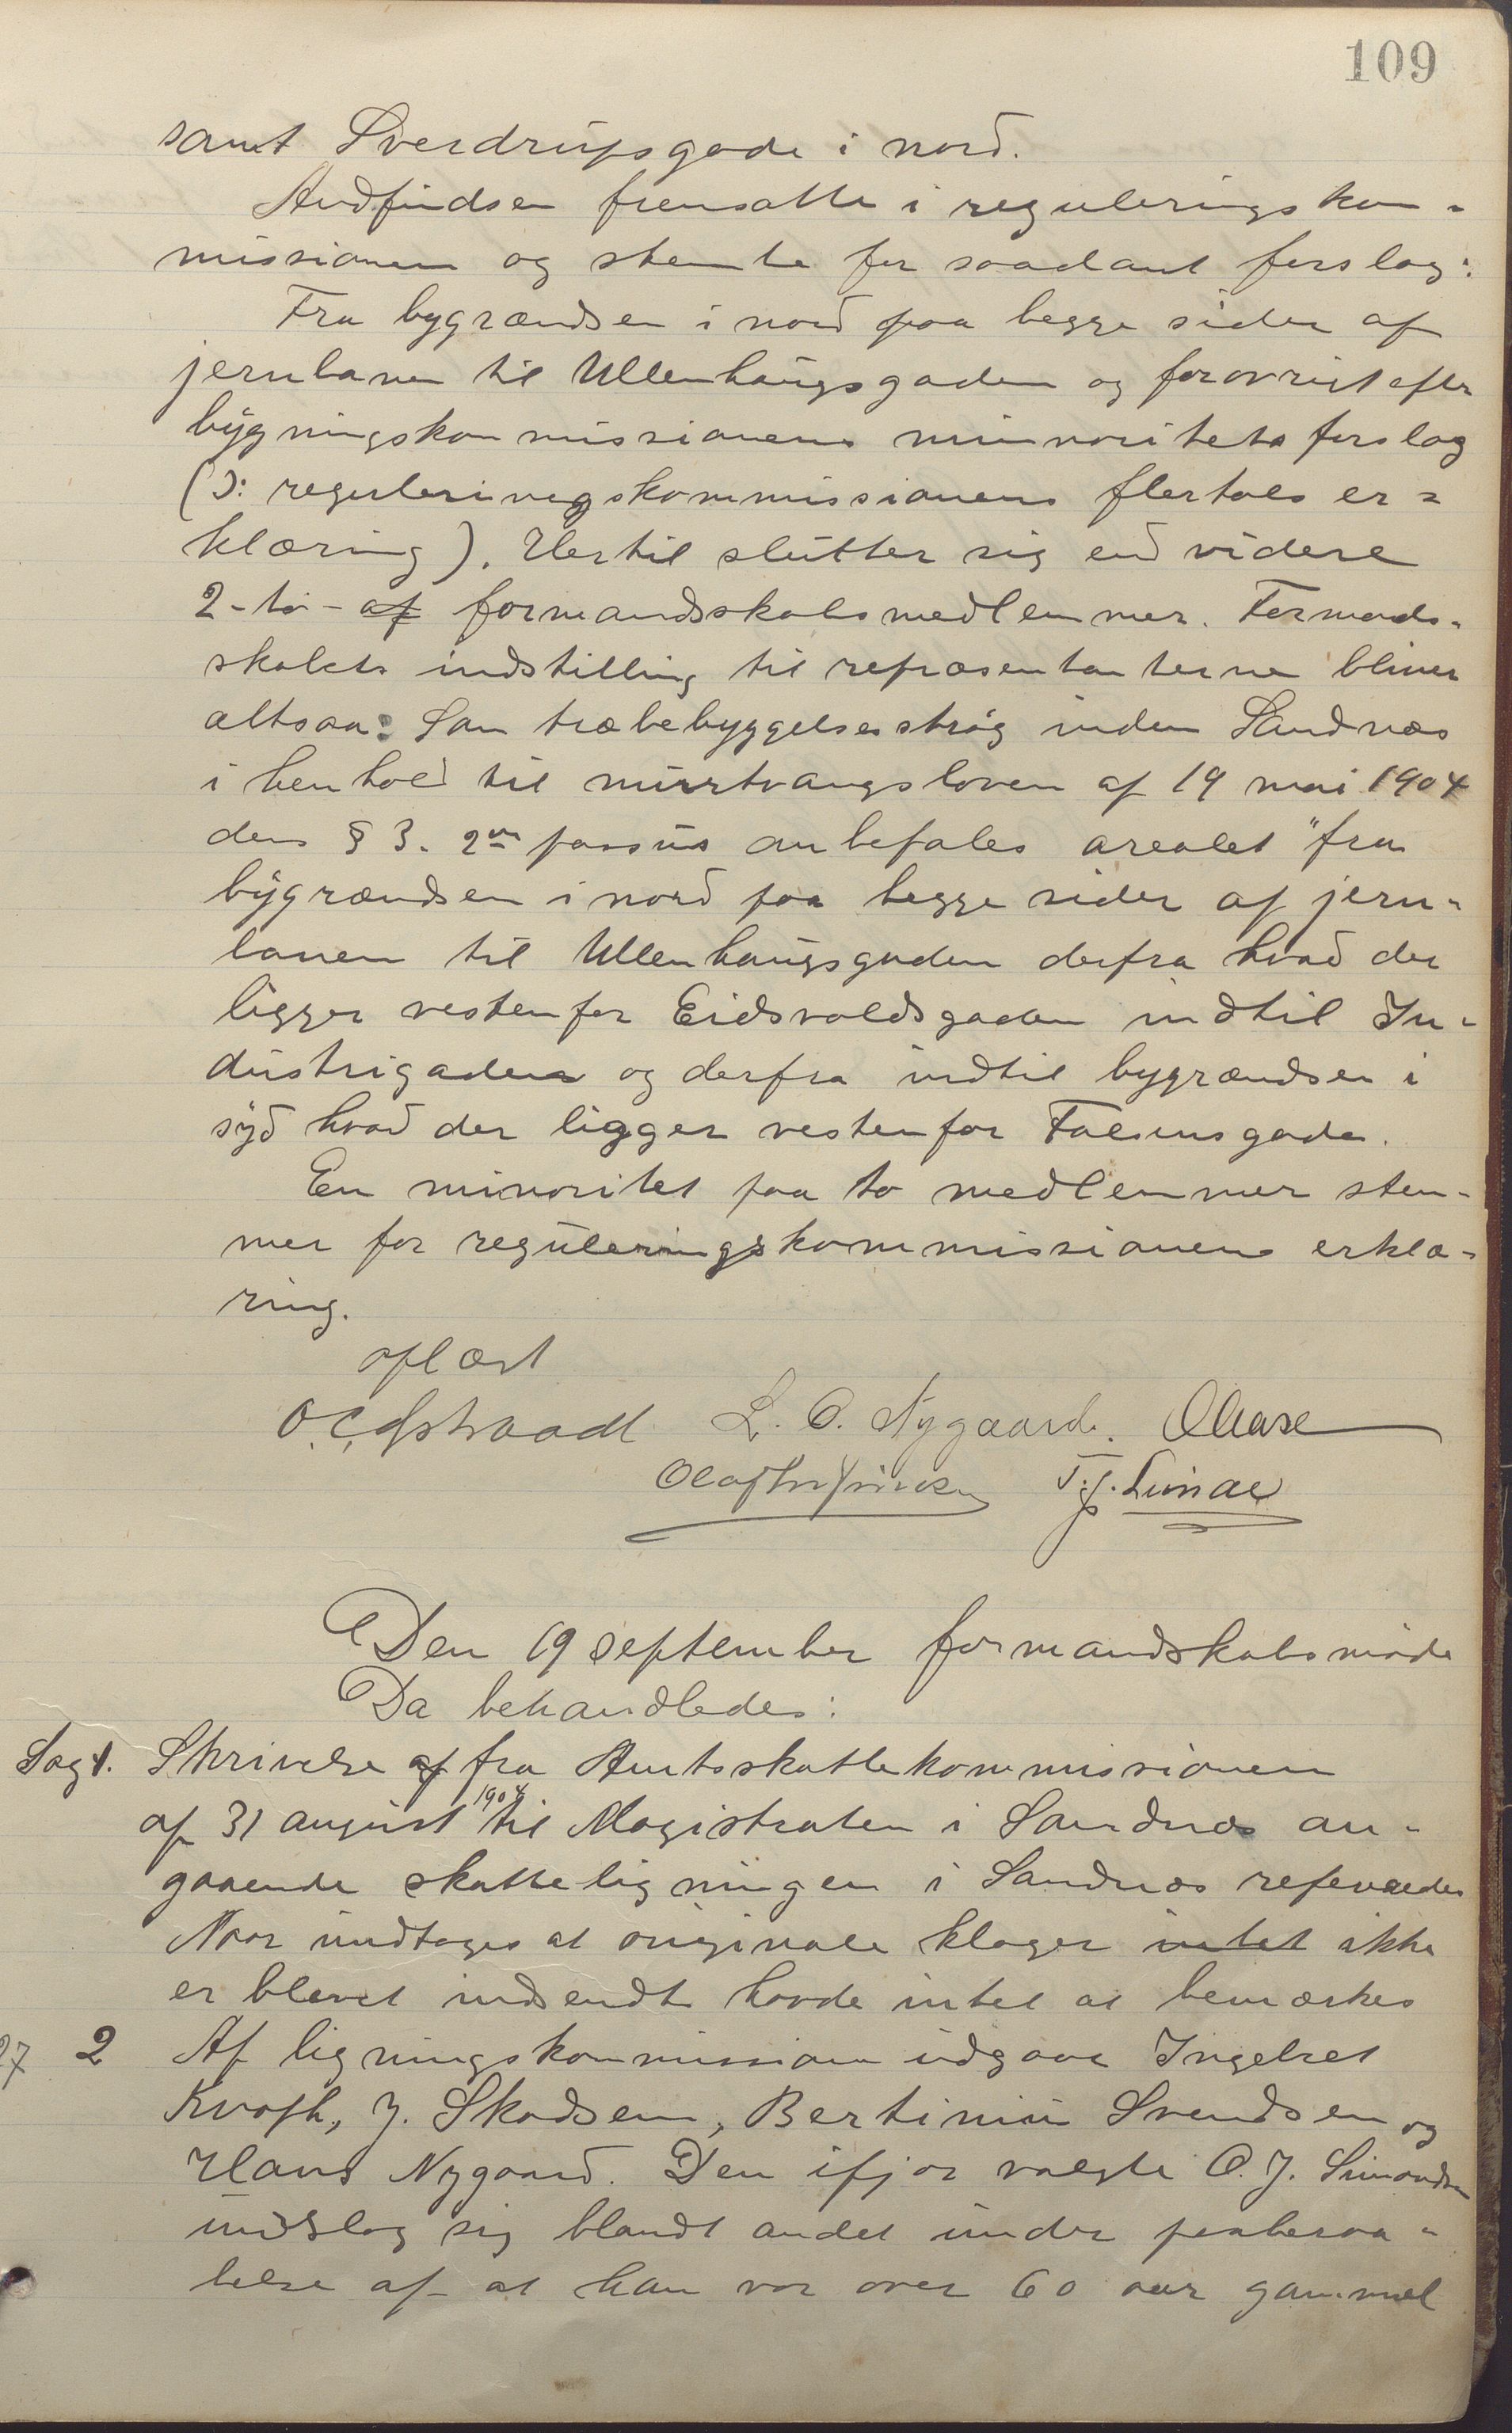 109
samt Sverdrupsgade i nord.
Audfindsen fremsatte i reguleringskom-
missionen og stemte for saadant forslag:
Fra bygrændsen i nord paa begge sider af
jernbanen til Ullenhaugsgaden og forøvrigt efter
bygningskommissionens minoritets forslag
(ɔ: reguleringskommissionens flertals er=
klæring). Hertil slutter sig end videre
2-to- af formandskabsmedlemmer. Formands-
skabets indstilling til repræsentanterne bliver
altsaa: Som træbebyggelsesstrøg inden Sandnæs
i henhold til murtvangsloven af 19 mai 1904
dens § 3. 2den passus anbefales arealet "fra
bygrændsen i nord paa begge sider af jern-
banen til Ullenhaugsgaden derfra hvad der
ligger vestenfor Eidsvoldsgaden indtil In-
dustrigaden og derfra indtil bygrændsen i
syd hvad der ligger vestenfor Falsensgade.
En minoritet paa to medlemmer stem-
mer for reguleringskommissionens erklæ-
ring.
oplæst
L. O. Nygaard. O Aase
T. J. Limae
Den 19 september formandskabsmøde
Da behandledes:
Sag 1. Skrivelse af fra Amtsskattekommissionen
af 31 august 1904 til Magistraten i Sandnæs an-
gaaende skatteligningen i Sandnæs refereredes
Naar undtages at originale klager intet ikke
er blevet indsendt havde intet at bemærkes
27 2 Af ligningskommission udgaar Ingebret
J. Skadsem, Bertinius Svendsen og
Hans Nygaard. Den ifjor valgte O. J. Simonsen
undslog sig blandt andet under paabera-
belse af at han var over 60 aar gammel